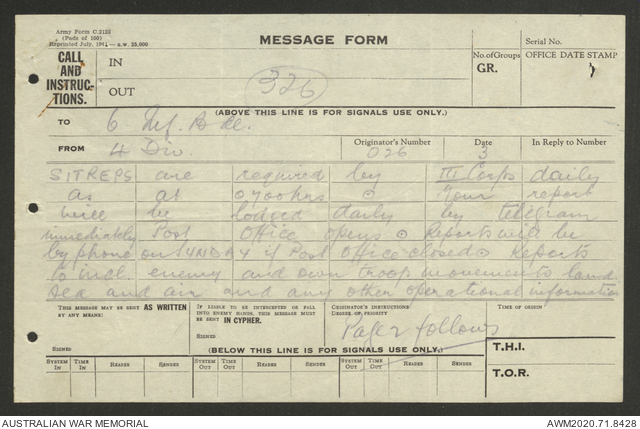 Army Form C.2128
(Pads of 100)
Reprinted July, 1941—s.w. 25,000
MESSAGE FORM
Serial No.
CALL AND INSTRUC-TIONS.
IN
OUT
326
No. of Groups
GR.
OFFICE DATE STAMP
(ABOVE THIS LINE IS FOR SIGNALS USE ONLY.)
TO 6 Inf. Bde.
FROM 4 Div.
Originator's Number
026
Date
3
In Reply to Number
SITREPS are required by III Corps daily
as at 0700hrs ⊙ Your report
will be lodged daily by telegram
immediately Post Office opens ⊙ Reports will be
by phone on SUNDAY if Post Office closed ⊙ Reports
to incl. enemy and own troop movements land
sea and air and any other operational information
THIS MESSAGE MAY BE SENT AS WRITTEN BY ANY MEANS.
SIGNED
IF LIABLE TO BE INTERCEPTED OR FALL INTO ENEMY HANDS, THIS MESSAGE MUST BE SENT IN CYPHER.
SIGNED
ORIGINATOR'S INSTRUCTIONS
DEGREE OF PRIORITY
Page 2 follows
TIME OF ORIGIN
(BELOW THIS LINE IS FOR SIGNALS USE ONLY.)
T.H.I.
SYSTEM IN TIME IN READER SENDER SYSTEM OUT TIME OUT READER SENDER SYSTEM OUT TIME OUT READER SENDER
T.O.R.
AUSTRALIAN WAR MEMORIAL
AWM2020.71.8428